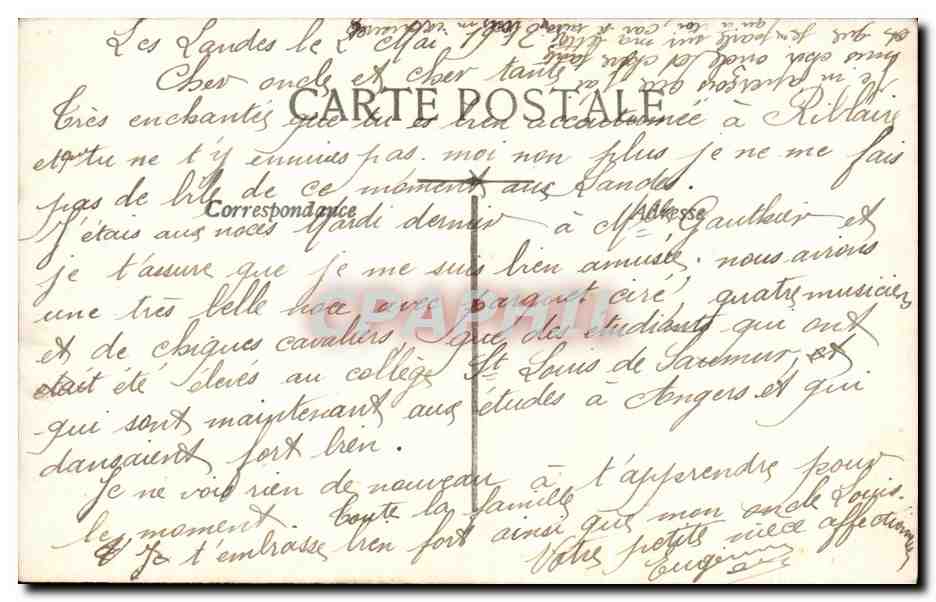 Les Landes le 2 Mai
Cher oncle et cher tante
CARTE POSTALE
Très enchantée que tu es bien accoutumée à Riblaire
et que tu ne t'y ennuies pas. moi non plus je ne me fais
pas de bile de ce moment aux Landes.
Correspondance Adresse
J'étais aux noces Mardi dernier à Mlle Gauthier et
je t'assure que je me suis bien amusée. nous avions
une très belle noce avec parquet ciré, quatre musiciens
CPAPHIL
et de chiques cavaliers, que des étudiants qui ont
était été élevés au collège St Louis de Saumur, et
qui sont maintenant aux études à Angers et qui
dansaient fort bien.
Je ne vois rien de nouveau à t'apprendre pour
le moment. Toute la famille ainsi que mon oncle Louis.
Je t'embrasse bien fort
Votre petite nièce affectionnée
Eugénie